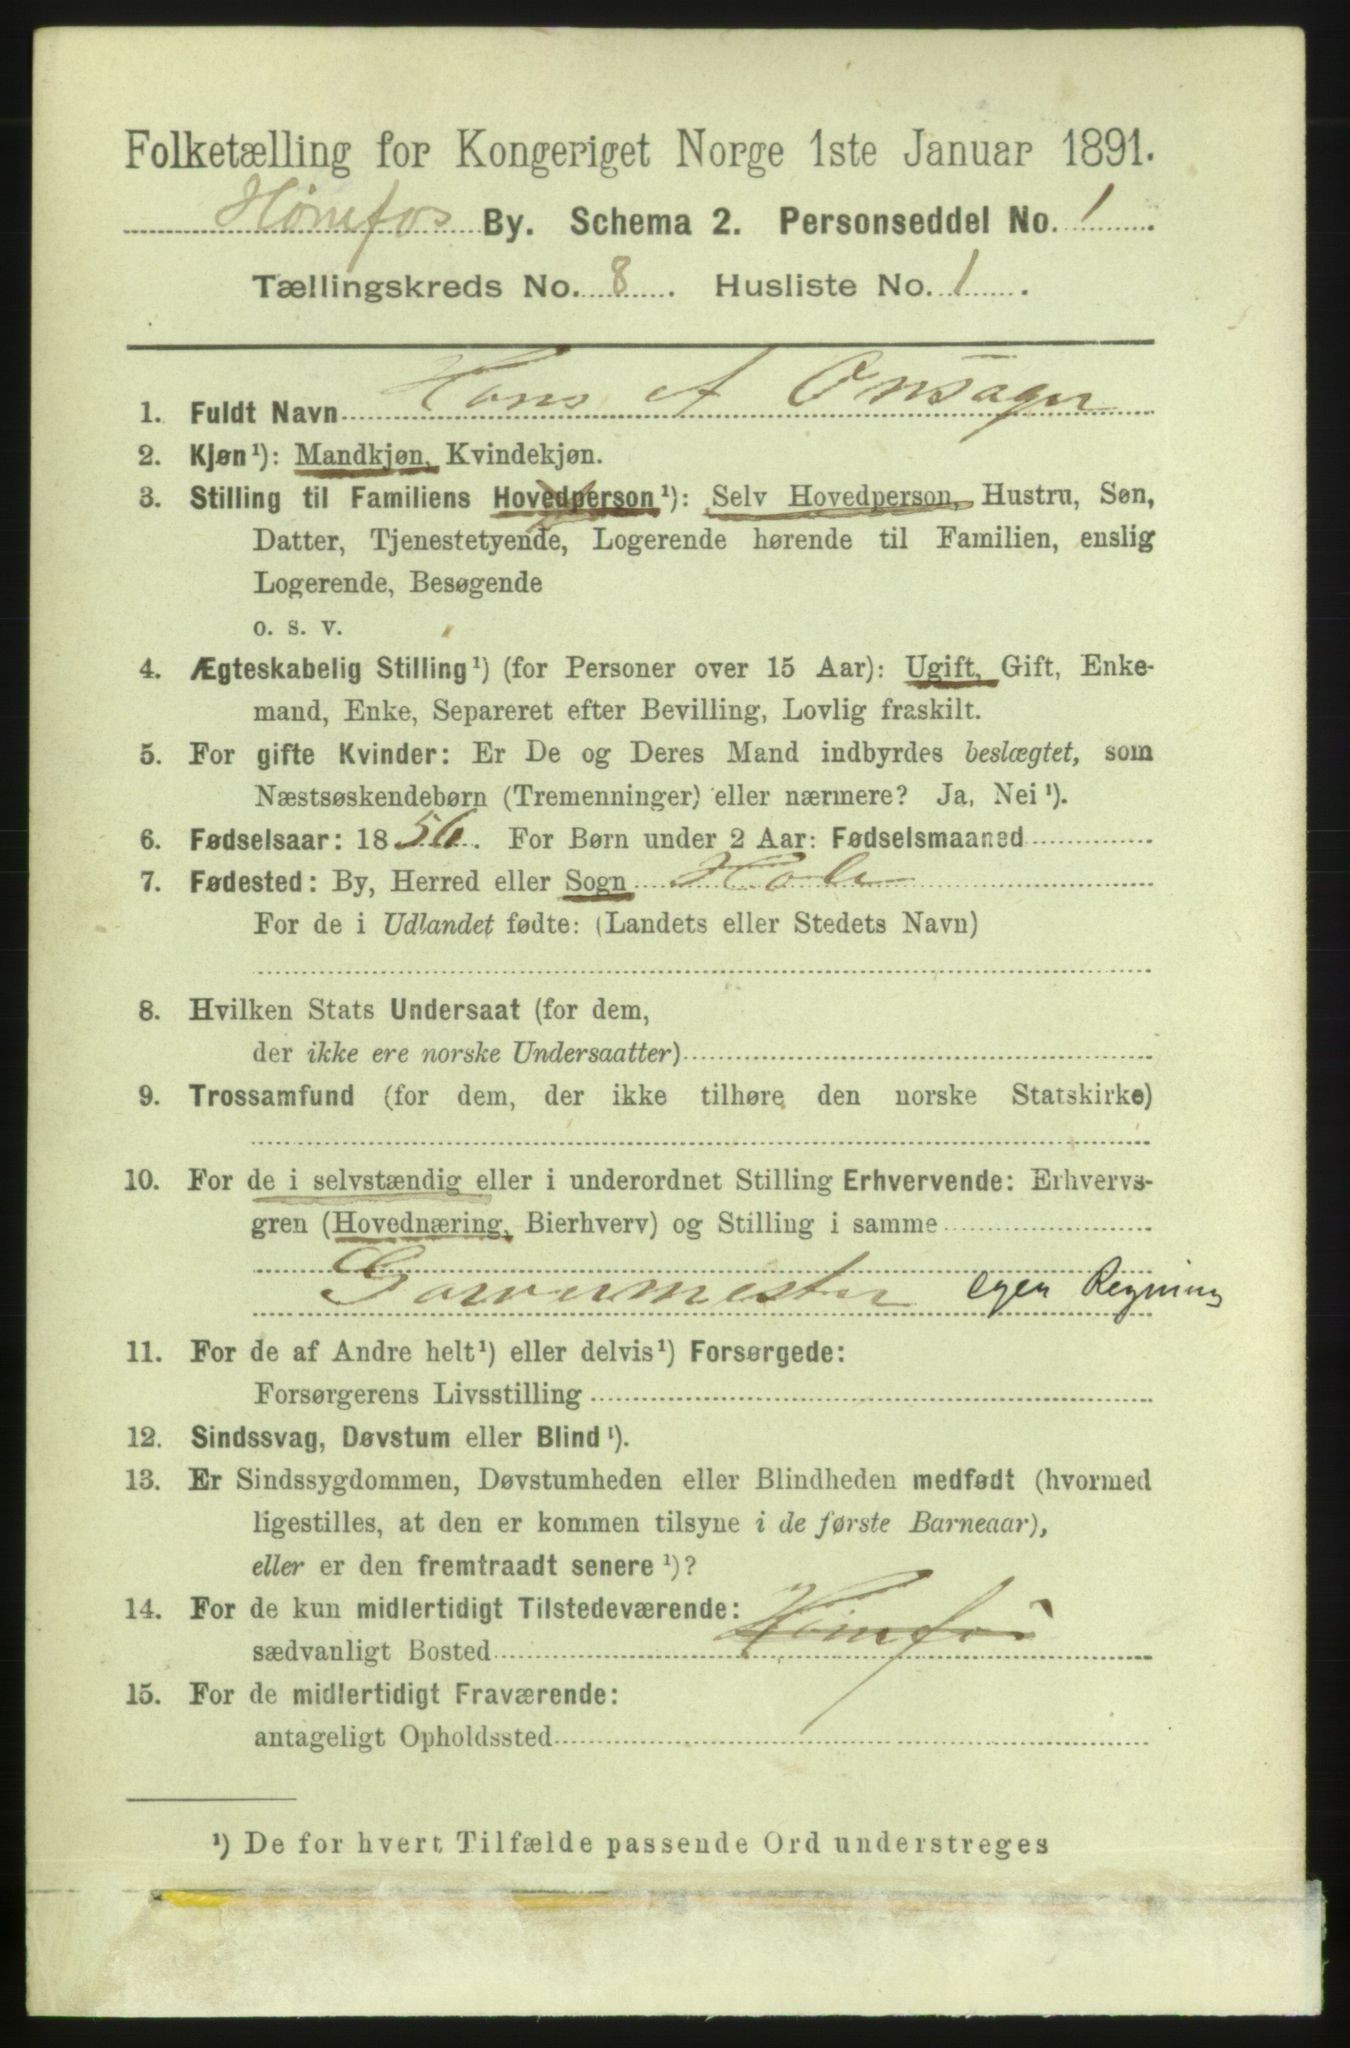 Folketælling for Kongeriget Norge 1ste Januar 1891.
Hønefos By. Schema 2. Personseddel No. 1
Tællingskreds No. 8. Husliste No. 1.
1. Fuldt Navn Hans A Onsager
2. Kjøn¹): Mandkjøn, Kvindekjøn.
3. Stilling til Familiens Hovedperson¹): Selv Hovedperson, Hustru, Søn,
Datter, Tjenestetyende, Logerende hørende til Familien, enslig
Logerende, Besøgende
o. s. v.
4. Ægteskabelig Stilling¹) (for Personer over 15 Aar): Ugift, Gift, Enke-
mand, Enke, Separeret efter Bevilling, Lovlig fraskilt.
5. For gifte Kvinder: Er De og Deres Mand indbyrdes beslægtet, som
Næstsøskendebørn (Tremenninger) eller nærmere? Ja, Nei¹).
6. Fødselsaar: 1856. For Børn under 2 Aar: Fødselsmaaned
7. Fødested: By, Herred eller Sogn Hole
For de i Udlandet fødte: (Landets eller Stedets Navn)
8. Hvilken Stats Undersaat (for dem,
der ikke ere norske Undersaatter)
9. Trossamfund (for dem, der ikke tilhøre den norske Statskirke)
10. For de i selvstændig eller i underordnet Stilling Erhvervende: Erhvervs-
gren (Hovednæring, Bierhverv) og Stilling i samme
Garvermester egen Regning
11. For de af Andre helt¹) eller delvis¹) Forsørgede:
Forsørgerens Livsstilling
12. Sindssvag, Døvstum eller Blind¹).
13. Er Sindssygdommen, Døvstumheden eller Blindheden medfødt (hvormed
ligestilles, at den er kommen tilsyne i de første Barneaar),
eller er den fremtraadt senere¹)?
14. For de kun midlertidigt Tilstedeværende:
sædvanligt Bosted Hønefos
15. For de midlertidigt Fraværende:
antageligt Opholdssted
¹) De for hvert Tilfælde passende Ord understreges